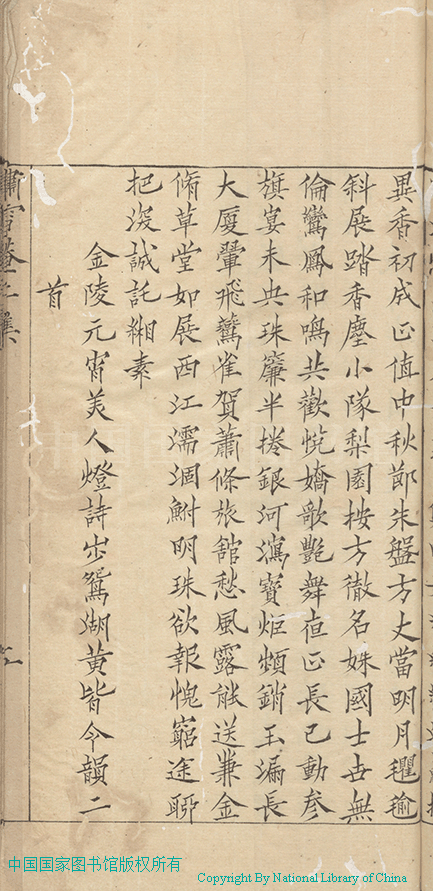 異香初成正值中秋節朱盤方丈當明月氍毹
斜展踏香塵小隊梨園按方徹名姝國士世無
倫鸞鳳和鳴共歡悅嬌歌艷舞夜正長已動參
旗宴未央珠簾半捲銀河瀉寶炬頻銷玉漏長
大厦翬飛鷰雀賀蕭條旅舘愁風露能送兼金
脩草堂如展西江濡涸鮒明珠欲報愧窮途聊
把深誠託緗素
金陵元宵美人燈詩步鴛湖黃皆令韻二
首
嘯雪菴二集
中国国家图书馆版权所有
Copyright By National Library of China